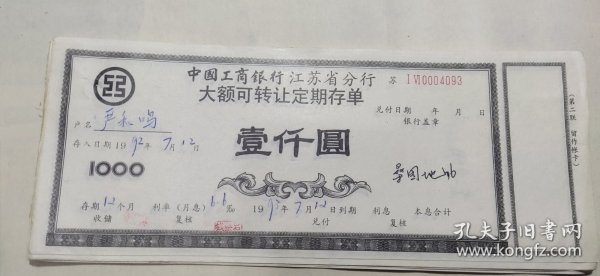 中國工商银行江苏省分行 苏 IⅥ0004093
大额可转让定期存单
兑付日期 年 月 日
银行盖章
户名
存入日期1992年7月12日
壹仟圓
1000
存期12个月 利率(月息)6.6‰ 19 年7月12日到期 利息 本息合计
收储 复核 兑付 复核
(第二联 留作样卡)
孔夫子旧书网
www.kongfz.com